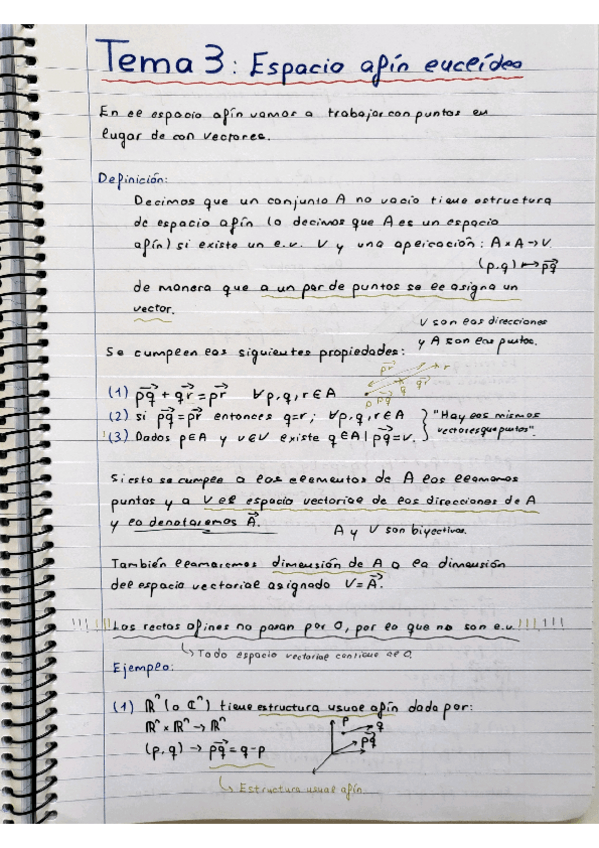 Tema 3: Espacio afín euclídeo
En el espacio afín vamos a trabajar con puntos en
lugar de con vectores.
Definición:
Decimos que un conjunto A no vacío tiene estructura
de espacio afín (o decimos que A es un espacio
afín) si existe un e.v. V y una aplicación: A×A→V
(p,q)↦p⃗q⃗
de manera que a un par de puntos se le asigna un
vector.
V son las direcciones
y A son los puntos.
Se cumplen las siguientes propiedades:
(1) p⃗q⃗ + q⃗r⃗ = p⃗r⃗ ∀p,q,r∈A
(2) si p⃗q⃗ = p⃗r⃗ entonces q=r; ∀p,q,r∈A
!(3) Dados p∈A y v∈V existe q∈A | p⃗q⃗=v.
"Hay los mismos
vectores que puntos".
Si esto se cumple a los elementos de A los llamamos
puntos y a V el espacio vectorial de las direcciones de A
y lo denotaremos A⃗.
A y V son biyectivos.
También llamaremos dimensión de A a la dimensión
del espacio vectorial asignado V=A⃗.
!!!!! Las rectas afines no pasan por 0, por lo que no son e.v. !!!!!!
↳ Todo espacio vectorial contiene el 0.
Ejemplo:
(1) ℝⁿ (o ℂⁿ) tiene estructura usual afín dada por:
ℝⁿ × ℝⁿ → ℝⁿ
(p,q) → p⃗q⃗ = q-p
p q p⃗q⃗
↳ Estructura usual afín